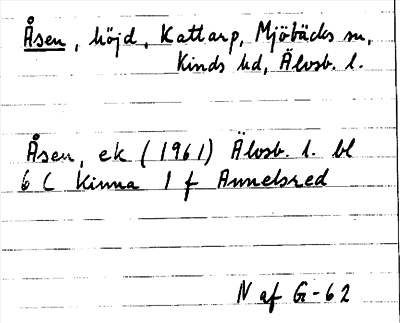 Åsen, höjd, Kattarp, Mjöbäcks sn,
Kinds hd, Älvsb. l.
Åsen, ek (1961) Älvsb. l. bl
6 C Kinna 1 f Annelsred
N af G-62